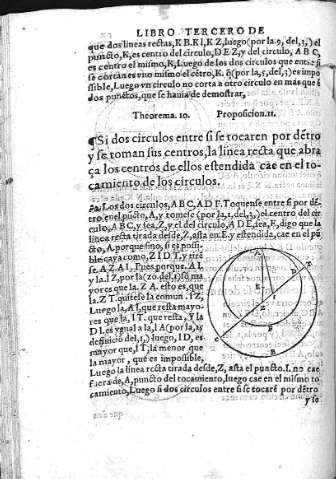 LIBRO TERCERO DE
que dos lineas rectas, K B. K I, K Z, luego (por la. 9, del, 3,) el
puncto, K, es centro del circulo, D E Z, y del circulo, A B C,
es centro el mismo, K, Luego de los dos circulos que entre si
se cortan es uno mismo el cẽtro, K. q̃ (por la, 5, del, 3) es impo
sible, Luego vn circulo no corta a otro circulo en mas que ẽ
dos punctos, que se hauia de demostrar,
Theorema. 10. Proposicion. 11.
¶ Si dos circulos entre si se tocaren por dẽtro
y se toman sus centros, la linea recta que abra
ça los centros de ellos estendida cae en el to-
camiento de los circulos.
los dos circulos, A B C, A D F. Toquense entre si por dẽ
tro en el pũcto, A, y tomese (por la, 1, del, 3,) el centro del cir
culo, A B C, y sea, Z, y el del circulo, A D E, sea, F, digo que la
linea recta tirada desde, Z, asta en F. y estendida, cae en el pũ
cto, A. porque sino, si es posi
ble caya como, Z I D T, y tirẽ
se. A Z. A I. Pues porque. A I
y la. I Z, por la (20. del. 1) sõ ma
yores que la. Z A. esto es, que
la. Z T. quitese la comun. I Z,
Luego la, A I, que resta mayo
res que la, I T. que resta, Y la
D I, es ygual a la, I A (por la, 15
definiciõ del, 1,) luego, I D, es
mayor que, I T, la menor que
la mayor, que es imposible,
Luego la linea recta tirada desde, Z, asta el puncto. I. no cae
fuera de, A, puncto del tocamiento, luego cae en el mismo to
camiento, Luego si dos circulos entre si se tocarẽ por dẽtro
y se